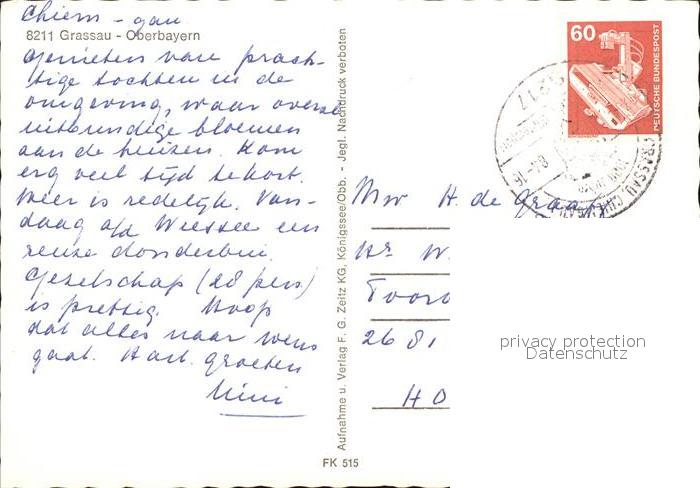 Chiem - gau
8211 Grassau - Oberbayern
Genieten van prach-
tige tochten in de
omgeving, waar overal
uitbundige bloemen
aan de huizen. Kom
erg veel tijd te kort.
Weer is redelijk. Van-
daag a/d Weissee een
reuze donderbui.
Gezelschap (28 pers)
is prettig. Hoop
dat alles naar wens
gaat. Hart. groeten
Mini
Aufnahme u. Verlag F. G. Zeitz KG, Königssee/Obb. - Jegl. Nachdruck verboten
FK 515
60
DEUTSCHE BUNDESPOST
8217
GRASSAU, CHIEMGAU
Mw H. de Graaff
W.
Toor
2681
HO
privacy protection
Datenschutz